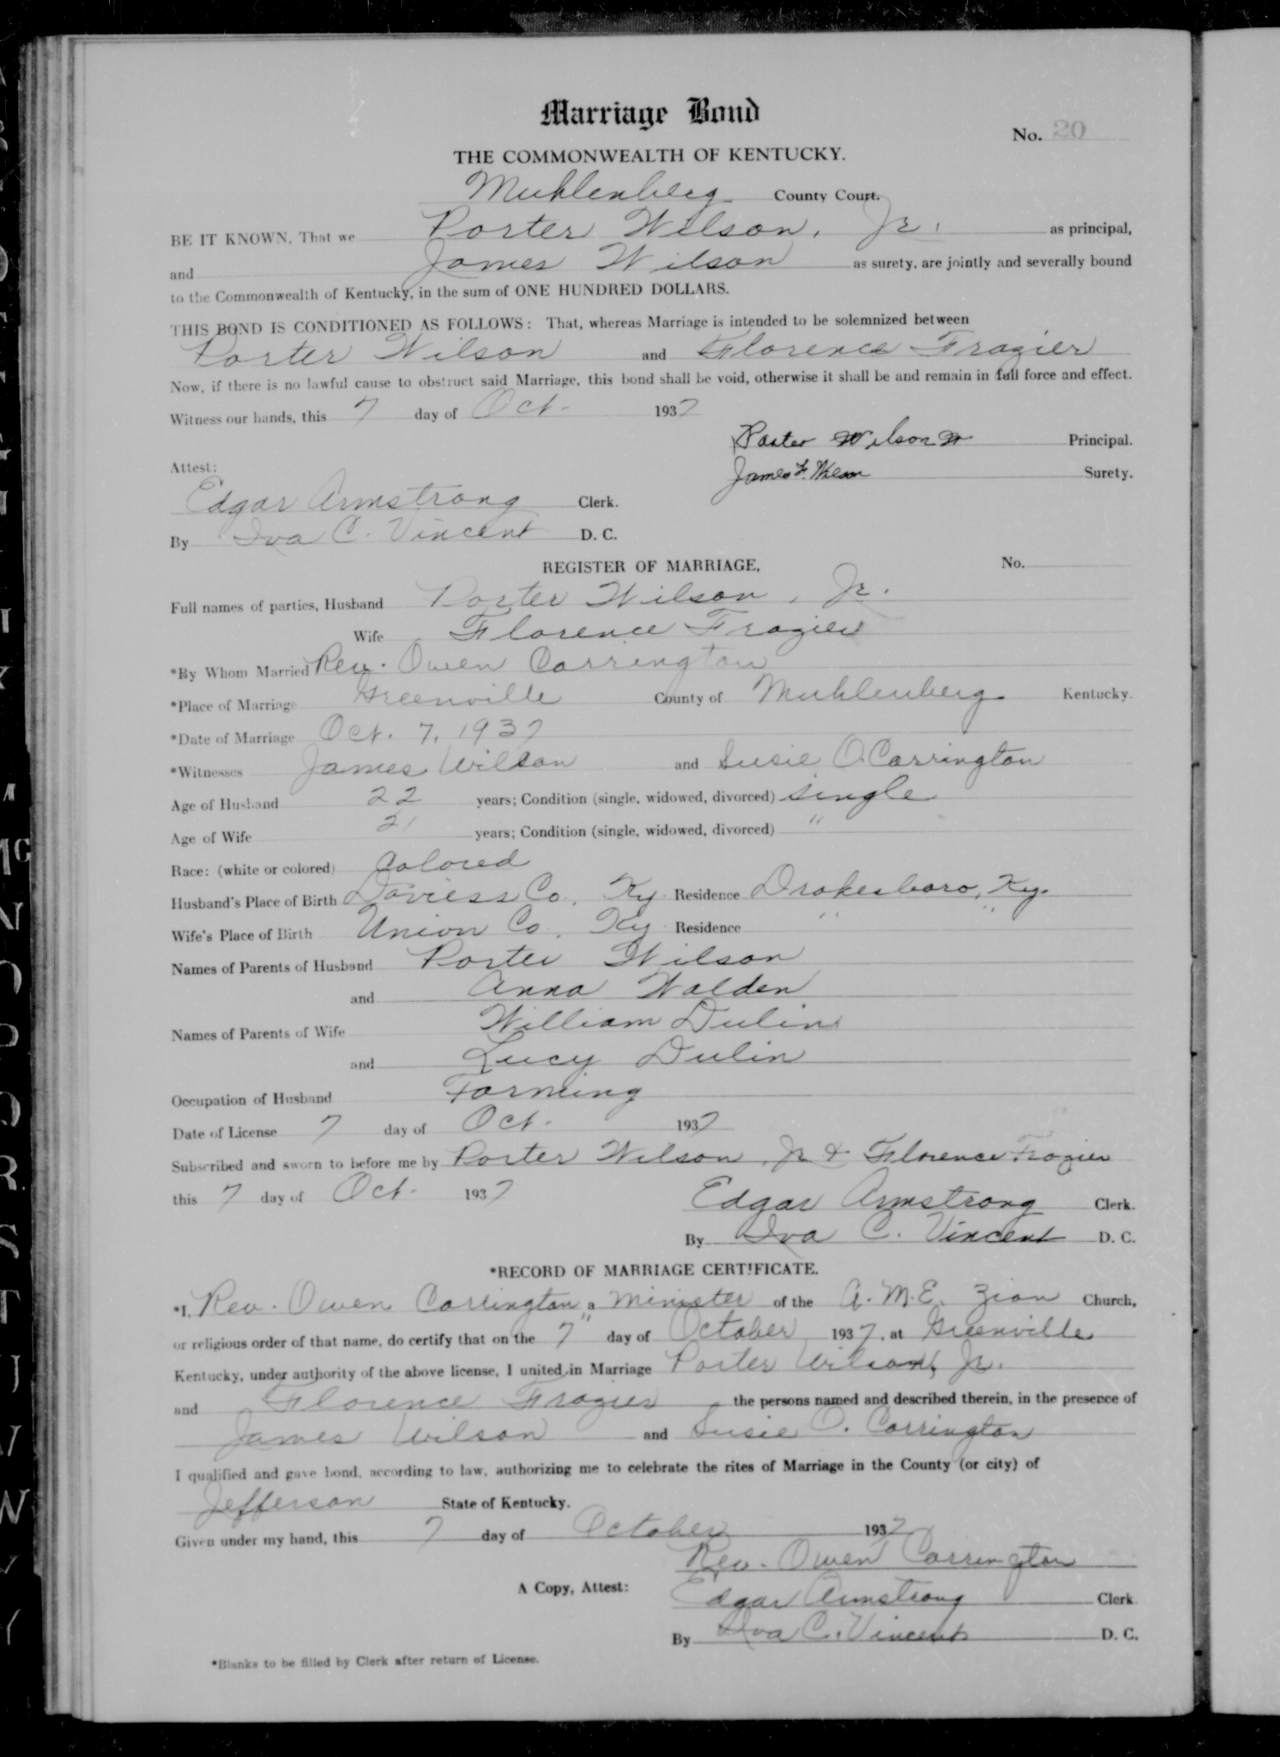 Marriage Bond
No. 20
THE COMMONWEALTH OF KENTUCKY.
Muhlenberg County Court.
BE IT KNOWN, That we Porter Wilson, Jr. as principal,
and James Wilson as surety, are jointly and severally bound
to the Commonwealth of Kentucky, in the sum of ONE HUNDRED DOLLARS.
THIS BOND IS CONDITIONED AS FOLLOWS: That, whereas Marriage is intended to be solemnized between
Porter Wilson and Florence Frazier
Now, if there is no lawful cause to obstruct said Marriage, this bond shall be void, otherwise it shall be and remain in full force and effect.
Witness our hands, this 7 day of Oct. 1937
Porter Wilson Jr Principal.
Attest:
James F. Wilson Surety.
Edgar Armstrong Clerk.
By Iva C. Vincent D. C.
REGISTER OF MARRIAGE, No.
Full names of parties, Husband Porter Wilson, Jr.
Wife Florence Frazier
*By Whom Married Rev. Owen Carrington
*Place of Marriage Greenville County of Muhlenberg Kentucky.
*Date of Marriage Oct. 7, 1937
*Witnesses James Wilson and Susie O. Carrington
Age of Husband 22 years; Condition (single, widowed, divorced) single
Age of Wife 21 years; Condition (single, widowed, divorced) "
Race: (white or colored) Colored
Husband's Place of Birth Daviess Co. Ky Residence Drakesboro, Ky.
Wife's Place of Birth Union Co. Ky Residence " "
Names of Parents of Husband Porter Wilson
and Anna Walden
Names of Parents of Wife William Dulin
and Lucy Dulin
Occupation of Husband Farming
Date of License 7 day of Oct. 1937
Subscribed and sworn to before me by Porter Wilson, Jr & Florence Frazier
this 7 day of Oct. 1937
Edgar Armstrong Clerk.
By Iva C. Vincent D. C.
*RECORD OF MARRIAGE CERTIFICATE.
*I, Rev. Owen Carrington a Minister of the A. M. E. Zion Church,
or religious order of that name, do certify that on the 7" day of October 1937, at Greenville
Kentucky, under authority of the above license, I united in Marriage Porter Wilson, Jr.
and Florence Frazier the persons named and described therein, in the presence of
James Wilson and Susie O. Carrington
I qualified and gave bond, according to law, authorizing me to celebrate the rites of Marriage in the County (or city) of
Jefferson State of Kentucky.
Given under my hand, this 7 day of October 1937
Rev. Owen Carrington
A Copy, Attest: Edgar Armstrong Clerk
By Iva C. Vincent D. C.
*Blanks to be filled by Clerk after return of License.